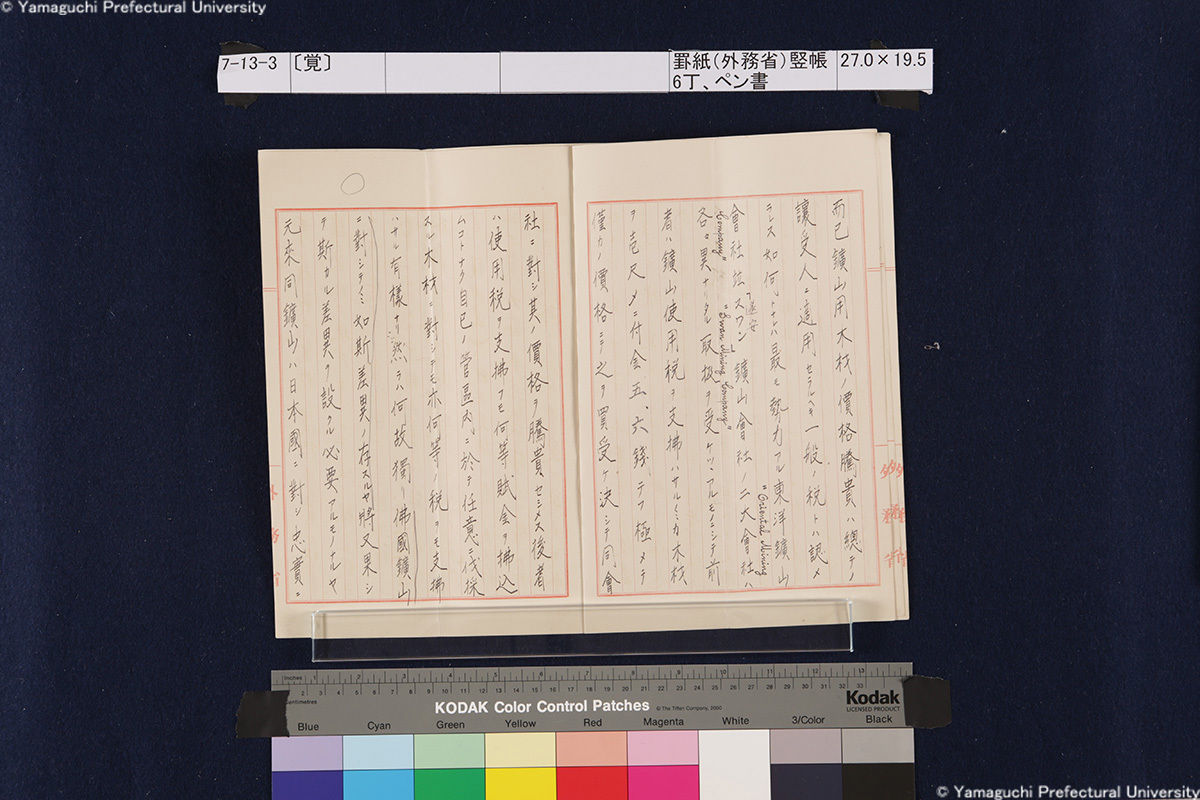 © Yamaguchi Prefectural University
7-13-3
〔覚〕
罫紙(外務省)竪帳
6丁、ペン書
27.0×19.5
而已鑛山用木材ノ價格騰貴ハ總テノ
讓受人ニ適用セラルヘキ一般ノ税トハ認メ
ラレス如何トナレハ最モ勢力アル東洋鑛山
"Oriental Mining
會社並スワン鑛山會社ノ二大會社ハ
遂安
Company"
"Swan Mining Company"
各〻異ナリタル取扱ヲ受ケツヽアルモノニシテ前
者ハ鑛山使用税ヲ支拂ハサルノミカ木材
ヲ壱尺〆ニ付金五、六錢、テフ極メテ
僅カノ價格ニテ之ヲ買受ケ決シテ同會
社ニ對シ其ノ價格ヲ騰貴セシメス後者
ハ使用税ヲ支拂フモ何等賦金ヲ拂込
ムコトナク自己ノ管區内ニ於テ任意ニ伐採
スル木材ニ對シテモ亦何等ノ税ヲモ支拂
ハサル有樣ナリ然ラハ何故獨リ佛國鑛山
ニ對シテノミ如斯差異ノ存スルヤ將又果シ
テ斯カル差異ヲ設クル必要アルモノナルヤ
元來同鑛山ハ日本國ニ對シ忠實ニ
外務省
務
省
Inches
Centimetres
KODAK Color Control Patches
© The Tiffen Company, 2000
Kodak
LICENSED PRODUCT
Blue
Cyan
Green
Yellow
Red
Magenta
White
3/Color
Black
© Yamaguchi Prefectural University